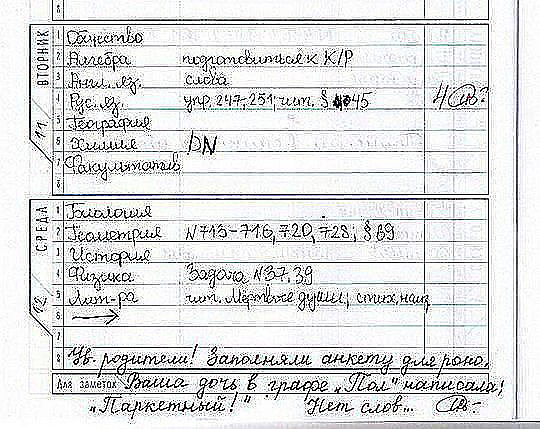 8
ВТОРНИК
11
1 Общество
2 Алгебра подготовиться к К/Р
3 Англ. яз. слова
4 Рус. яз. упр. 247, 251; чит. § 45 4
5 География
6 Химия
7 Факультатив
8
СРЕДА
12
1 Биология
2 Геометрия N 715-716, 720, 728; § 89
3 История
4 Физика Задача N 37, 39
5 Лит-ра чит. Мёртвые души; стих. наиз.
6
7
8 Ув. родители! Заполняли анкету для роно.
Для заметок Ваша дочь в графе „Пол" написала;
„Паркетный!" Нет слов...